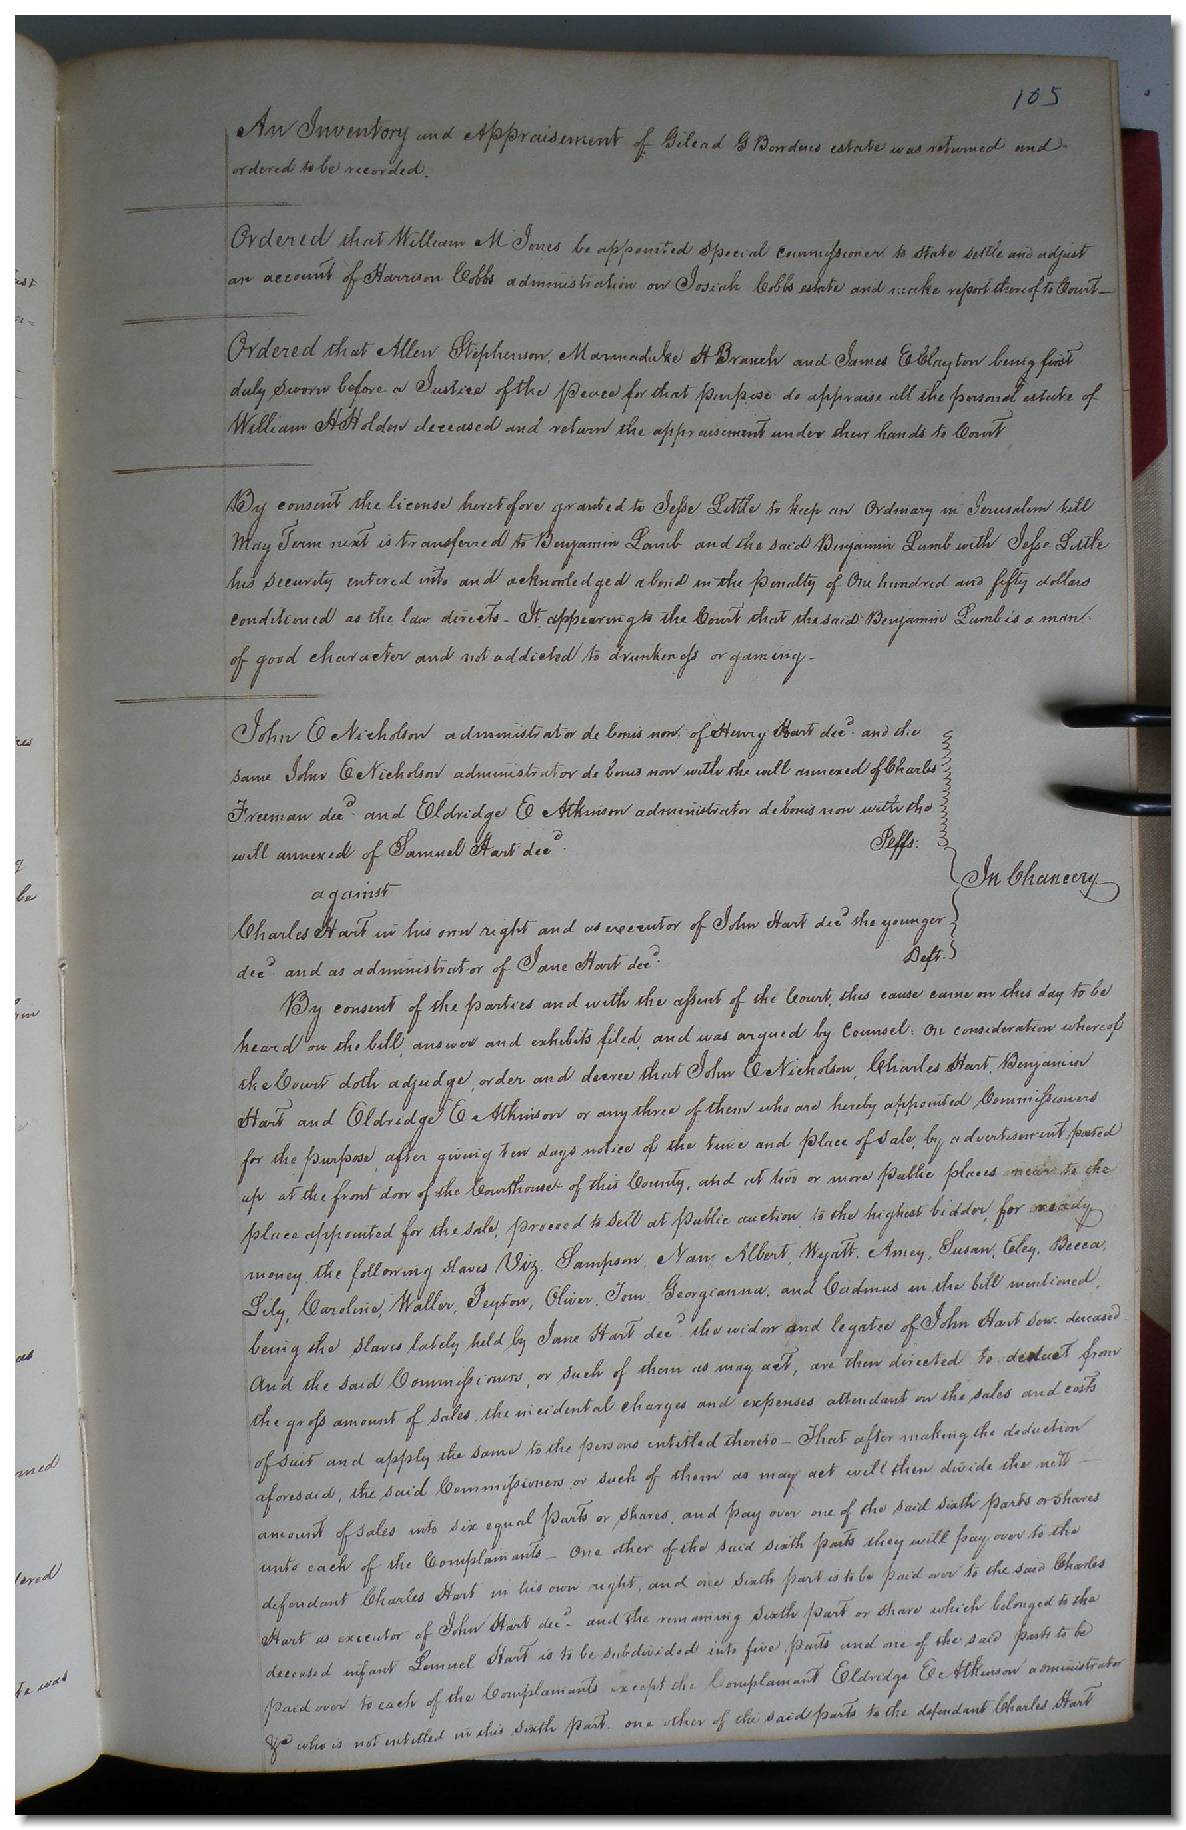 105
An Inventory and Appraisement of Gilead G Bowdens estate was returned and
ordered to be recorded.
Ordered that William M Jones be appointed Special Commissioner to state settle and adjust
an account of Harrison Cobbs administration on Josiah Cobbs estate and make report thereof to Court—
Ordered that Allen Stephenson, Marmaduke H Branch and James E Clayton being first
duly sworn before a Justice of the peace for that purpose do appraise all the personal estate of
William H Holden deceased and return the appraisement under their hands to Court
By consent the license heretofore granted to Jesse Little to keep an Ordinary in Jerusalem till
May Term next is transferred to Benjamin Lamb and the said Benjamin Lamb with Jesse Little
his security entered into and acknowledged a bond in the penalty of One hundred and fifty dollars
conditioned as the law directs – It appearing to the Court that the said Benjamin Lamb is a man
of good character and not addicted to drunkeness or gaming –
John E Nicholson administrator de bonis non of Henry Hart decd. and the
same John E Nicholson administrator de bonis non with the will annexed of Charles
Freeman decd. and Eldridge E Atkinson administrator de bonis non with the
will annexed of Samuel Hart decd. Peffs.
In Chancery
against
Charles Hart in his own right and as executor of John Hart decd the younger
decd and as administrator of Jane Hart decd. Deft.
By consent of the parties and with the assent of the Court, this cause came on this day to be
heard on the bill, answer and exhibits filed, and was argued by Counsel: On consideration whereof
the Court doth adjudge, order and decree that John E Nicholson, Charles Hart, Benjamin
Hart and Eldridge E Atkinson or any three of them who are hereby appointed Commissioners
for the purpose, after giving ten days notice of the time and place of sale, by advertisement posted
up at the front door of the Courthouse of this County, and at two or more public places near to the
place appointed for the sale, proceed to sell at public auction, to the highest bidder, for ready
money, the following slaves Viz. Sampson, Nan, Albert, Wyatt, Amey, Susan, Eley, Becca,
Lily, Caroline, Waller, Peyton, Oliver, Tom, Georgianna, and Cadmus in the bill mentioned,
being the slaves lately held by Jane Hart decd. the widow and legatee of John Hart Senr. deceased
And the said Commissioners, or such of them as may act, are then directed to deduct from
the gross amount of sales, the incidental charges and expenses attendant on the sales and costs
of suit and apply the same to the persons entitled thereto – That after making the deduction
aforesaid, the said Commissioners or such of them as may act will then divide the nett –
amount of sales into six equal parts or shares, and pay over one of the said sixth parts or shares
unto each of the Complainants – One other of the said sixth parts they will pay over to the
defendant Charles Hart in his own right, and one sixth part is to be paid over to the said Charles
Hart as executor of John Hart decd. and the remaining sixth part or share which belonged to the
deceased infant Lemuel Hart is to be subdivided into five parts and one of the said parts to be
paid over to each of the Complainants except the Complainant Eldridge E Atkinson administrator
&c who is not entitled in this sixth part. one other of the said parts to the defendant Charles Hart